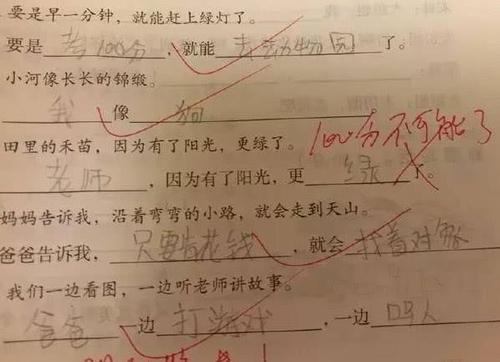 要是早一分钟，就能赶上绿灯了。
要是考100分，就能去动物园了。
小河像长长的锦缎。
我像狗
100分不可能了
田里的禾苗，因为有了阳光，更绿了。
老师，因为有了阳光，更绿了。
妈妈告诉我，沿着弯弯的小路，就会走到天山。
爸爸告诉我，只要肯花钱，就会找着对象
我们一边看图，一边听老师讲故事。
爸爸一边打游戏，一边骂人